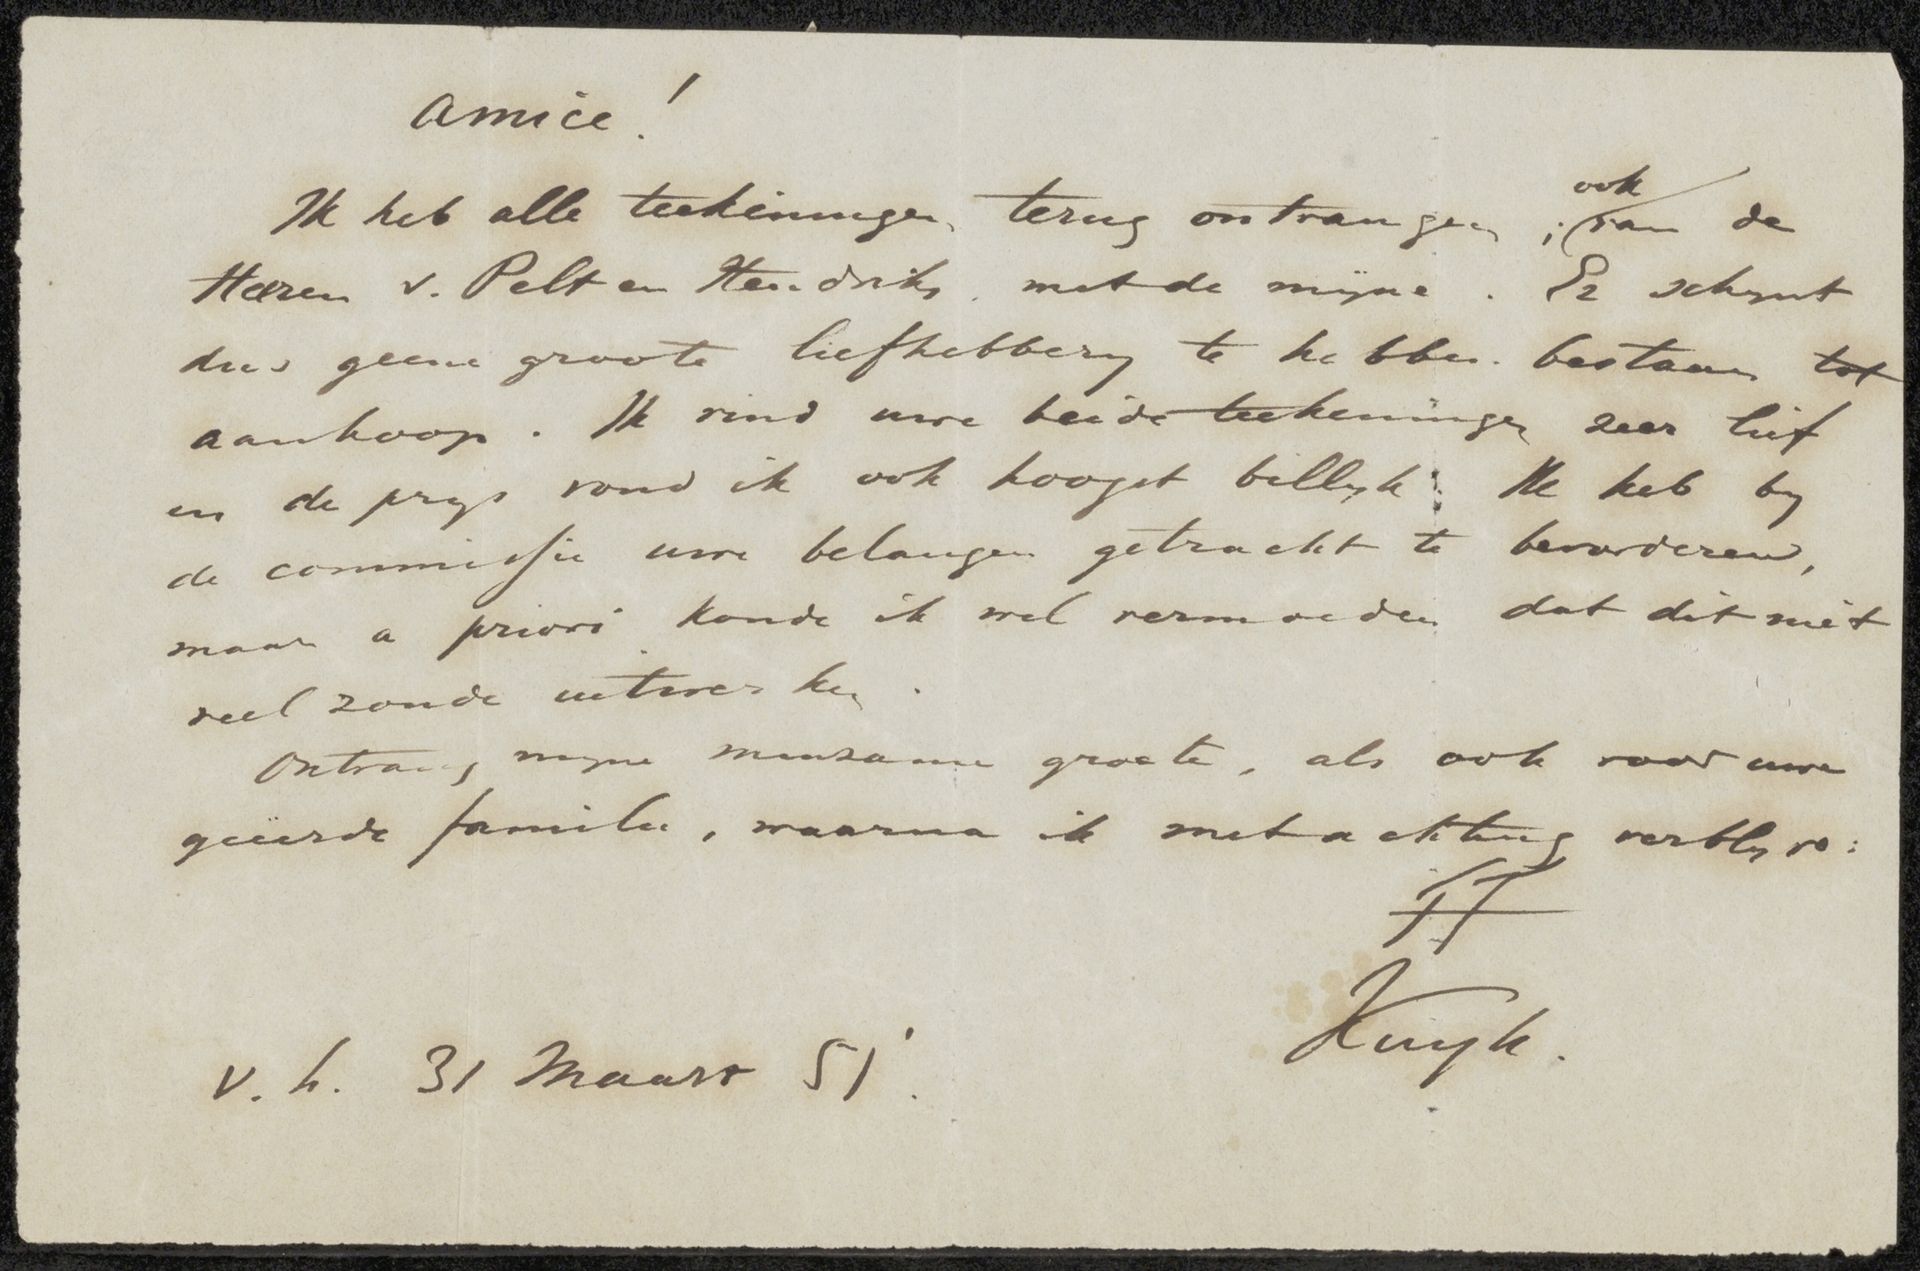 Amice!
Ik heb alle teekeningen terug ontvangen, ook van de
Heeren v. Pelt en Hendriks, met de mijne. Er schynt
dus geene groote liefhebbery te hebben bestaan tot
aankoop. Ik vind uwe beide teekeningen zeer lief
en de prys vond ik ook hoogst billyk. Ik heb by
de commissie uwe belangen getracht te bevorderen,
maar a priori konde ik wel vermoeden dat dit niet
veel zoude uitwerken.
Ontvang myne minzame groete, als ook voor uwe
geëerde familie, waarna ik met achting verblyve:
TT
Kuyk.
v. h. 31 Maart 51'.